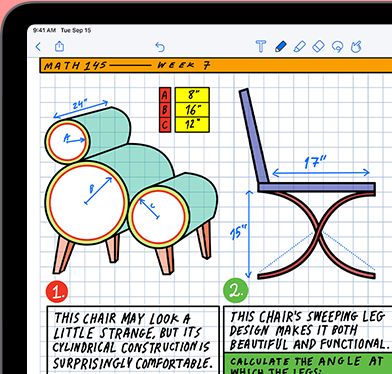 9:41 AM Tue Sep 15
MATH 145 WEEK 7
24"
A
B
C
A 8"
B 16"
C 12"
17"
15"
1.
THIS CHAIR MAY LOOK A
LITTLE STRANGE, BUT ITS
CYLINDRICAL CONSTRUCTION IS
SURPRISINGLY COMFORTABLE.
2.
THIS CHAIR'S SWEEPING LEG
DESIGN MAKES IT BOTH
BEAUTIFUL AND FUNCTIONAL.
CALCULATE THE ANGLE AT
WHICH THE LEGS: